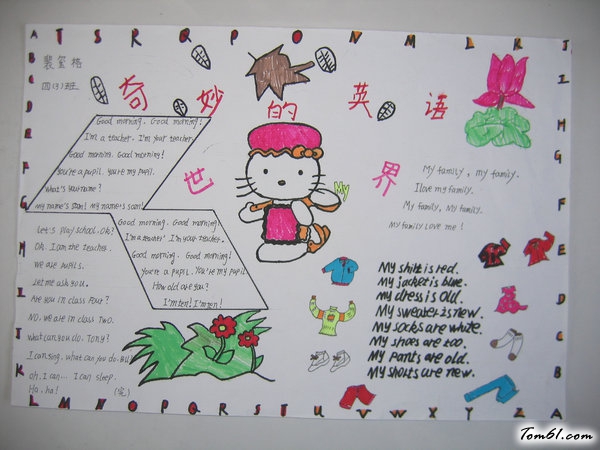 A T S R Q P O N M L K J
裴玺格
四(3)班
奇妙的英语
世界
Good morning. Good morning!
I'm a teacher. I'm your teacher.
Good morning. Good morning!
You're a pupil. You're my pupil.
What's your name?
My name's Sam! My name's Sam!
Good morning. Good morning!
I'm a teacher. I'm your teacher.
Good morning. Good morning!
You're a pupil. You're my pupil
How old are you?
I'm ten! I'm ten!
Let's play school. Ok?
Oh. I am the teacher.
We are pupils.
Let me ask you.
Are you in class Four?
No. We are in class Two.
What can you do. Tony?
I can sing. What can you do. Bill
oh. I can... I can sleep.
Ha. ha!
(完)
My
My family, my family.
I love my family.
My family, My family.
My family love me!
My shirt is red.
My jacket is blue.
My dress is old.
My sweater is new.
My socks are white.
My shoes are too.
My pants are old.
My shorts are new.
B C D E F G H I J K
I H G F E D C B
L M N O P Q R S T U V W X Y Z A
Tom61.com